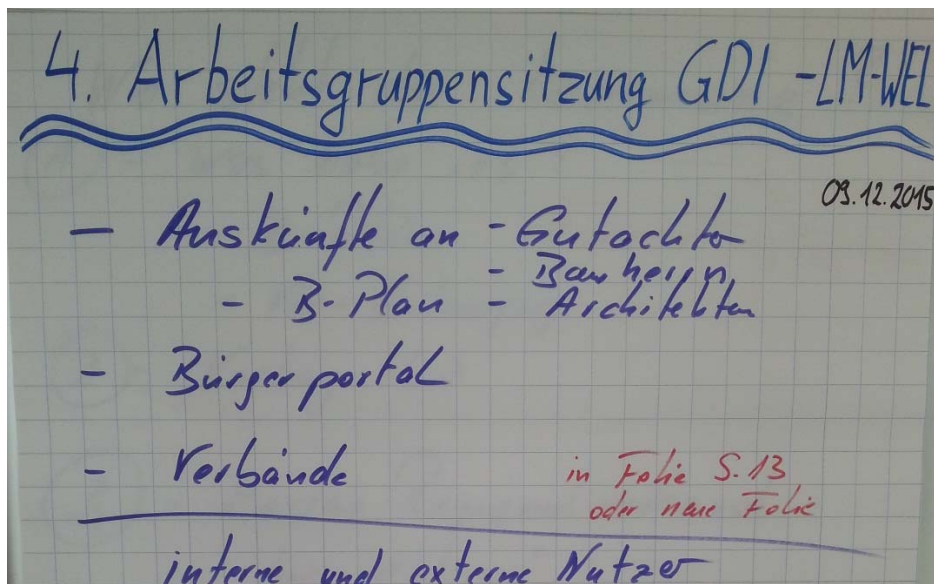 4. Arbeitsgruppensitzung GDI -LM-WEL
09.12.2015
— Auskünfte an - Gutachter
- Bauherrn
- B-Plan - Architekten
- Bürgerportal
- Verbände
in Folie S.13
oder neue Folie
interne und externe Nutzer